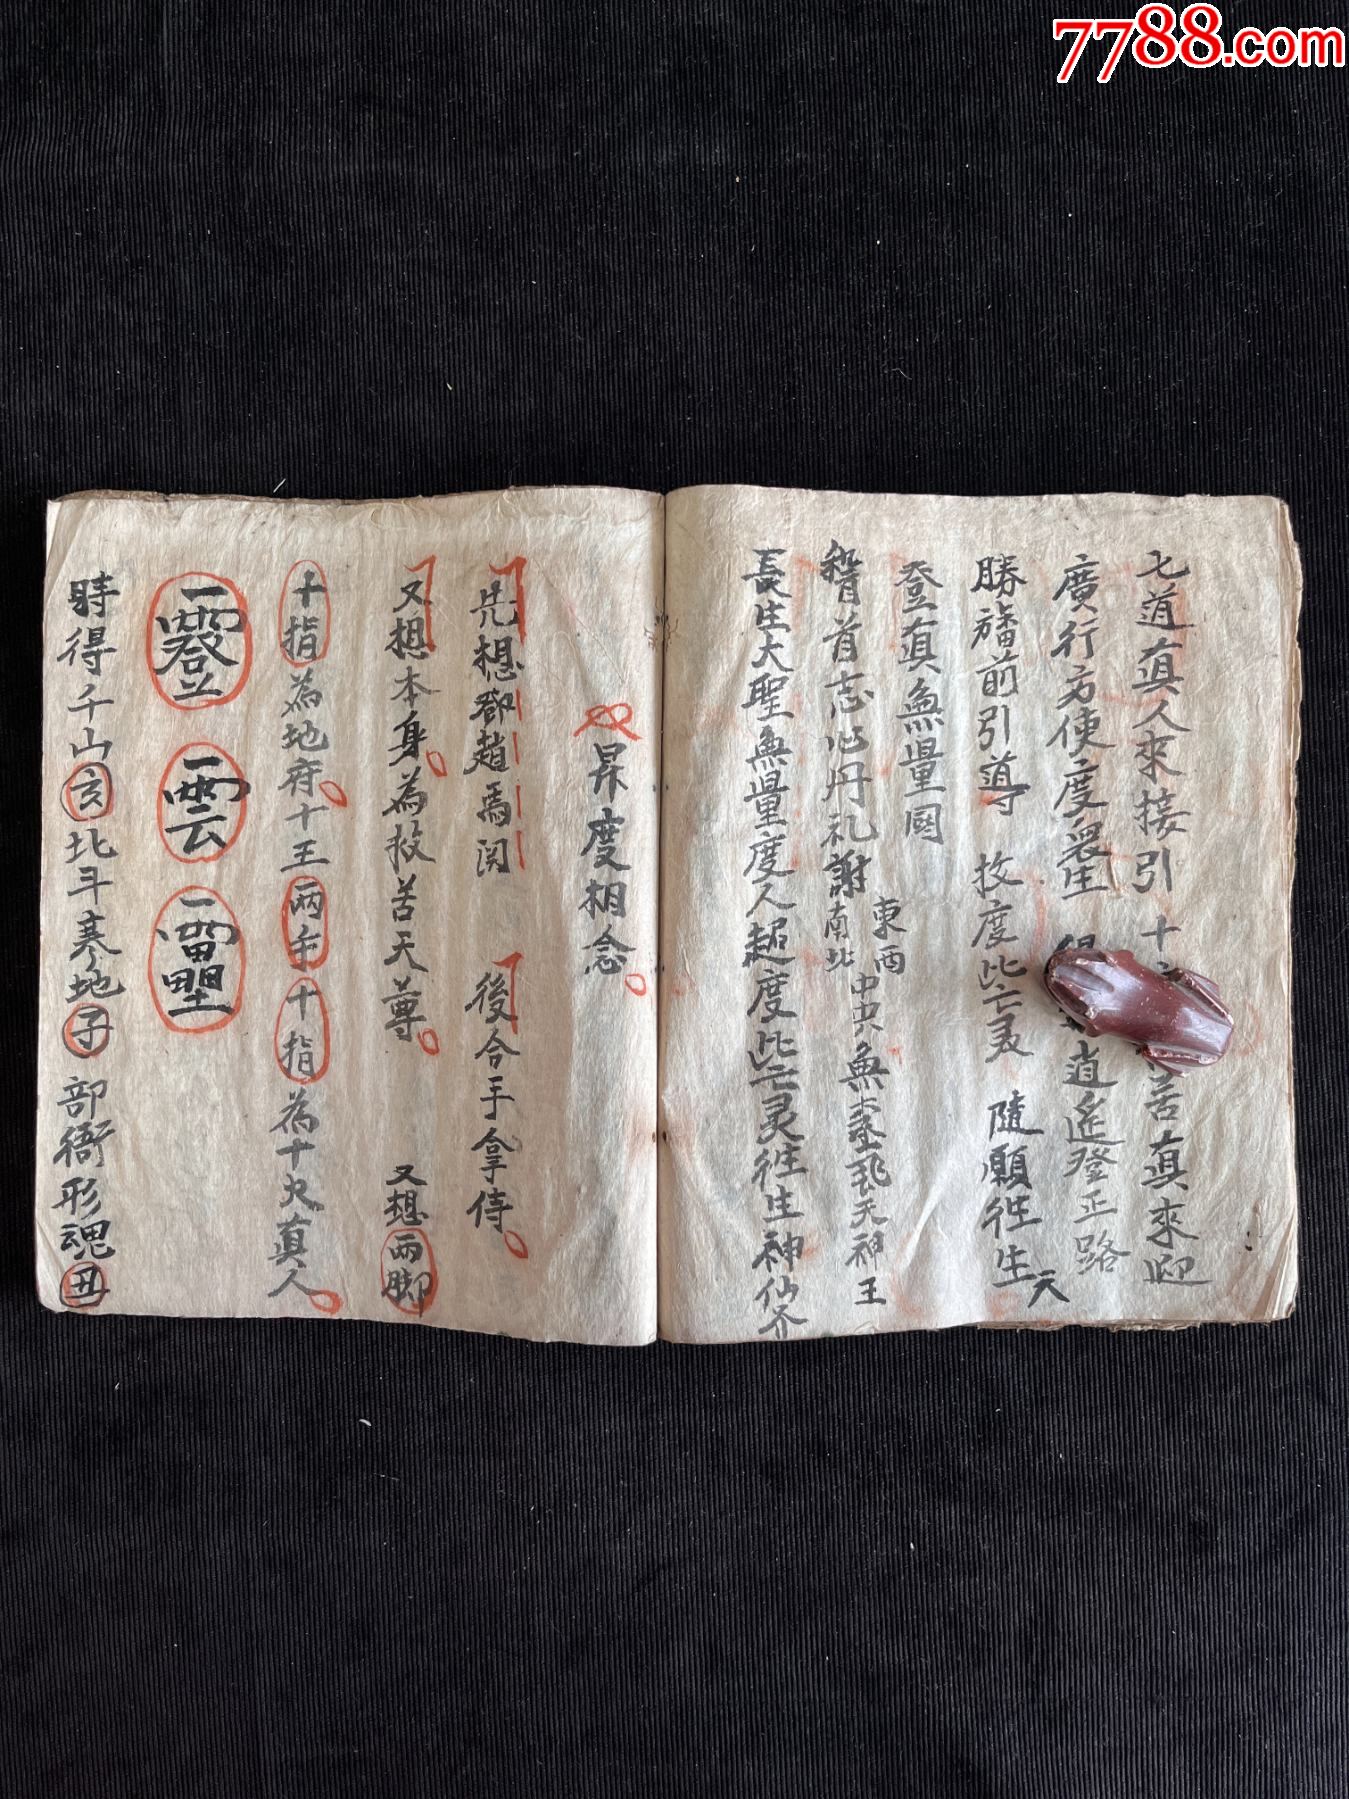 7788.com
七道真人來接引 十 苦真來迎
廣行方便度衆生 逍遥登正路
勝旛前引導 救度此亡灵 隨願徃生天
登真無量國
稽首志心丹礼謝東西南北中央無 天神王
長生大聖無量度人超度此亡灵徃生神仙界
昇度相念
先想鄧趙馬関 後合手拿侍
又想本身為救苦天尊 又想兩脚
十指為地府十王兩手十指為十大真人
雲
時得千山亥北斗寒地子部衛形魂丑